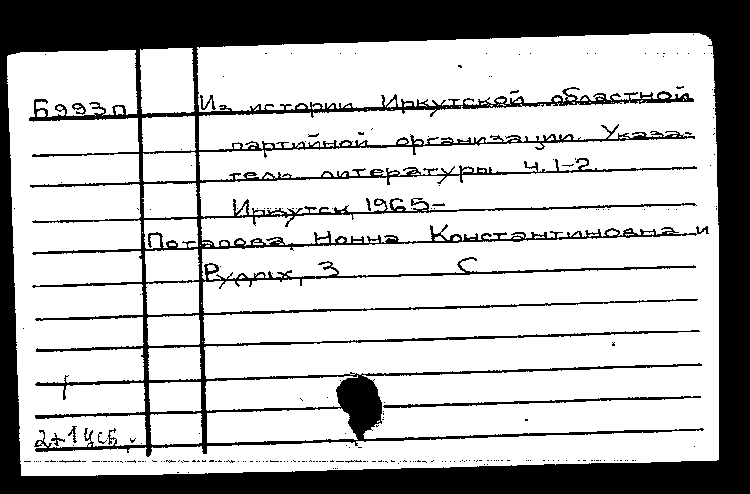 Б993п Из истории Иркутской областной
партийной организации. Указа-
тель литературы. Ч. 1-2.
Иркутск, 1965-
Потапова, Нонна Константиновна и
Рудых, З С
2+1